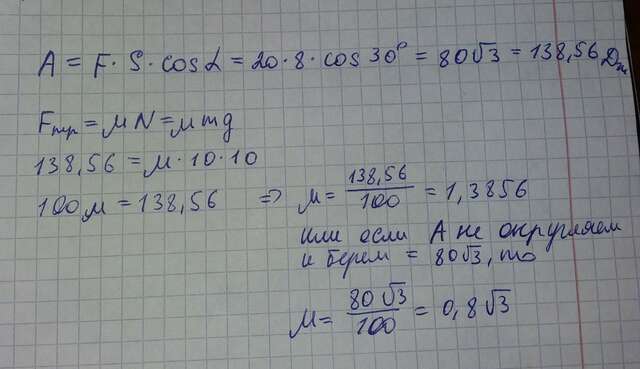 A = F · S · cos α = 20 · 8 · cos 30° = 80√3 = 138,56 Дж
Fтр = μN = μmg
138,56 = μ · 10 · 10
100μ = 138,56 ⇒ μ = 138,56/100 = 1,3856
или если А не округляем
и берем = 80√3, то
μ = 80√3/100 = 0,8√3